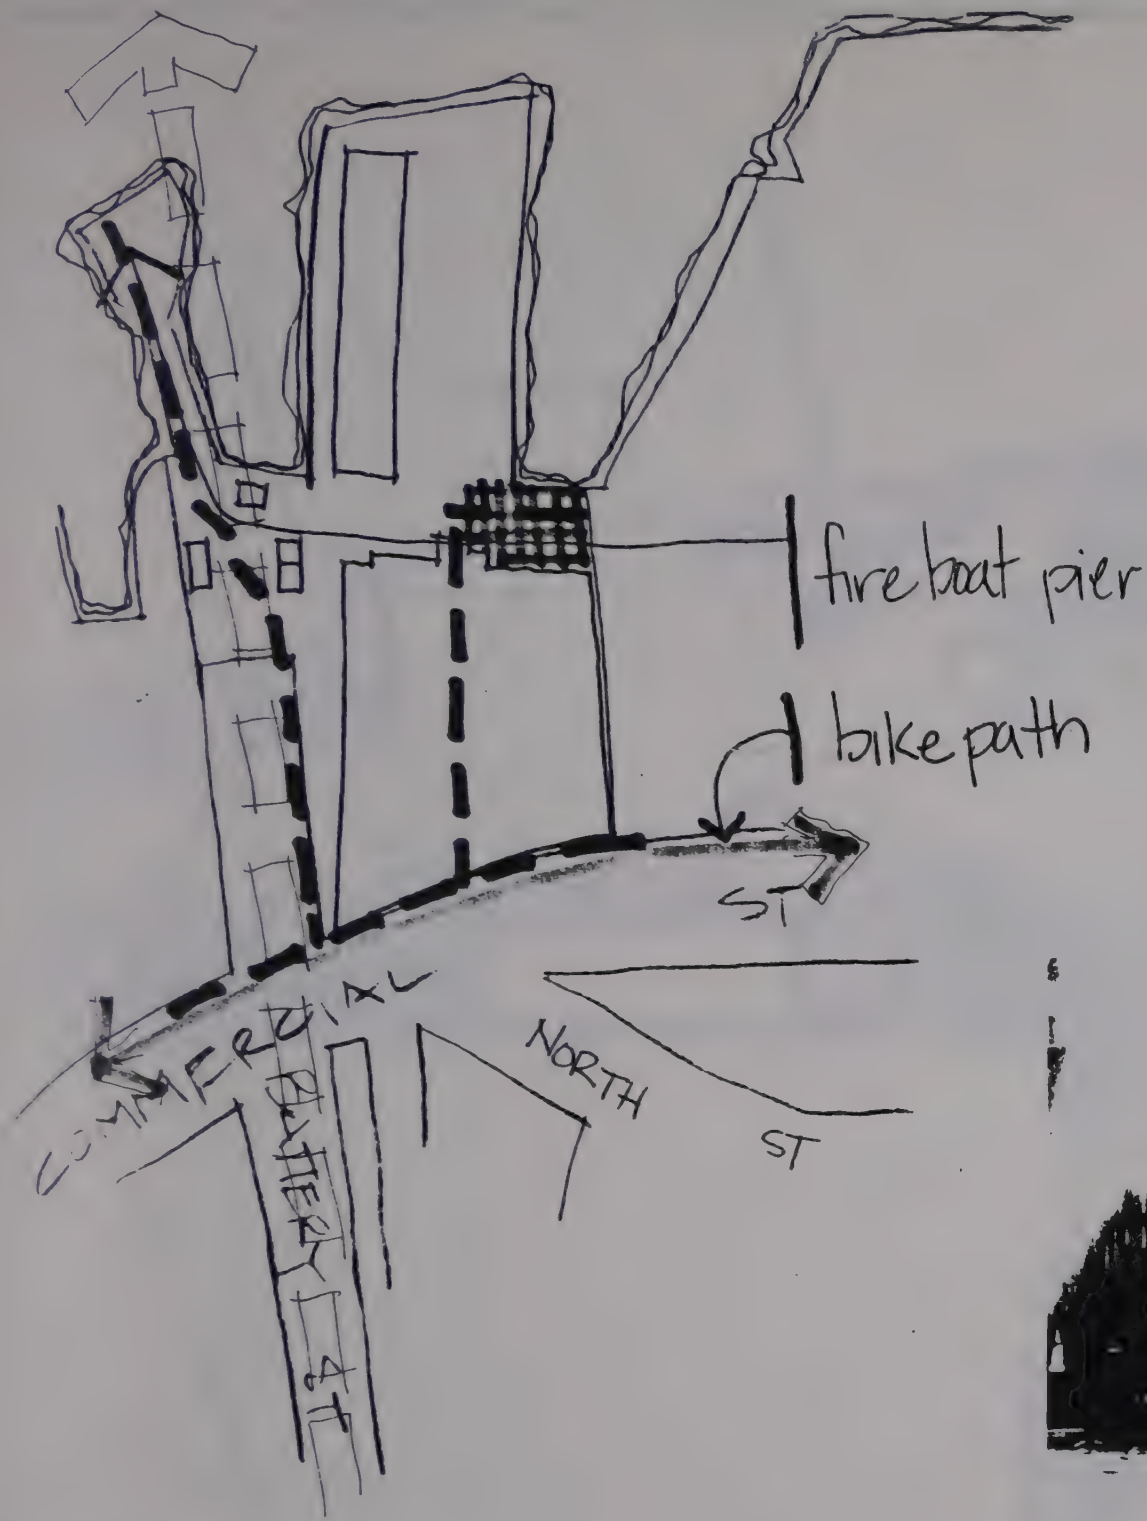 fire boat pier
bike path
COMMERCIAL ST
NORTH ST
BATTERY ST